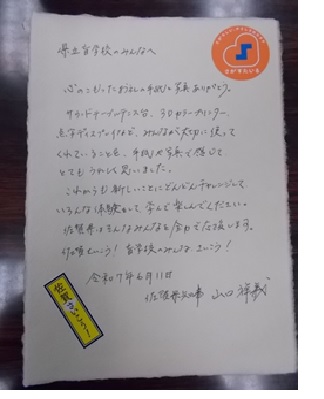 県立盲学校のみんなへ
心のこもったお手紙と写真ありがとう。
サウンドテーブルテニス台、3Dカラープリンター、
点字ディスプレイなど、みんなが大切に使って
くれていることを、手紙や写真で感じて
とてもうれしく思いました。
これからも新しいことにどんどんチャレンジして、
いろんな体験をして学んで楽しんでください。
佐賀県はそんなみんなを全力で応援します。
盲学校のみんな、さいこう!
令和7年 月11日
佐賀県知事 山口祥義
佐賀さいこう!